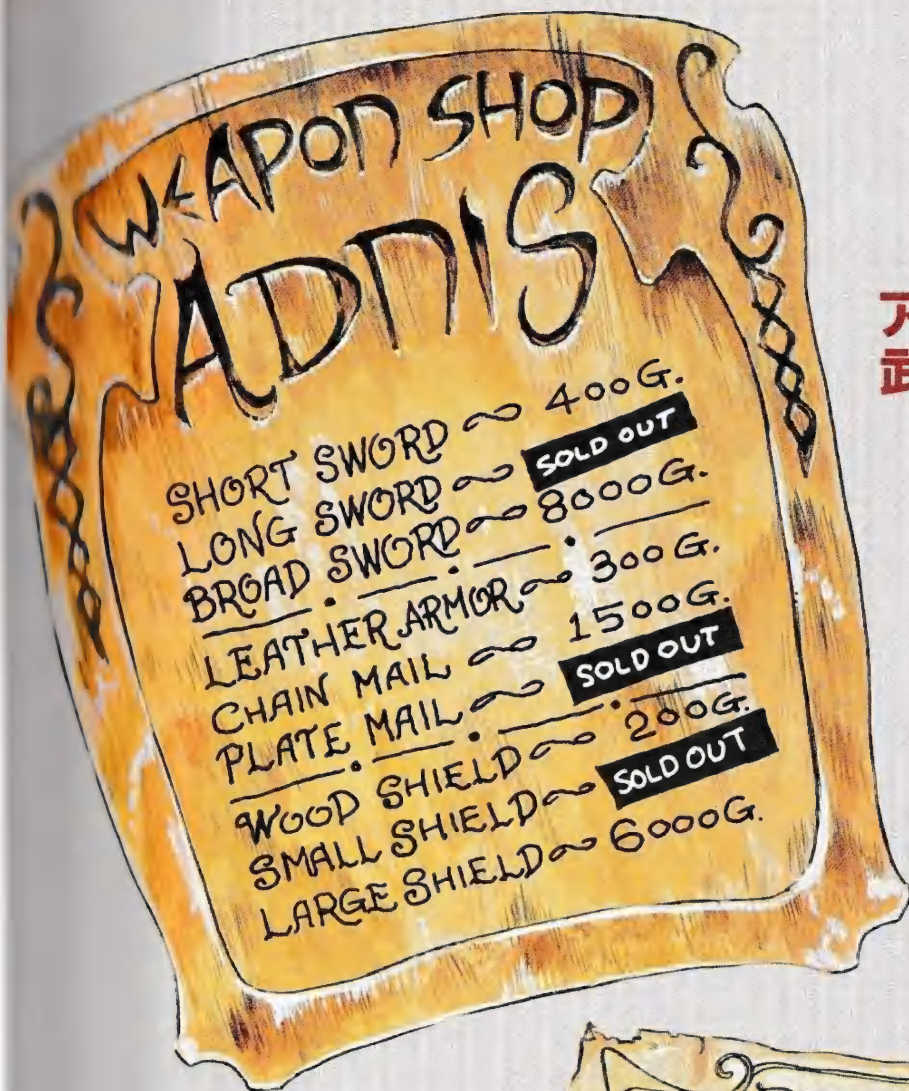 WEAPON SHOP
ADNIS
SHORT SWORD ~ 400G.
LONG SWORD ~ SOLD OUT
BROAD SWORD ~ 8000G.
LEATHER ARMOR ~ 300G.
CHAIN MAIL ~ 1500G.
PLATE MAIL ~ SOLD OUT
WOOD SHIELD ~ 200G.
SMALL SHIELD ~ SOLD OUT
LARGE SHIELD ~ 6000G.
武